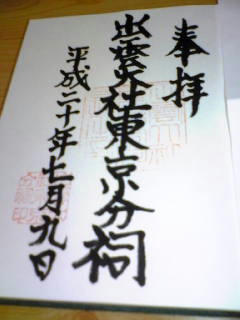 奉拝
出雲大社東京分祠
平成二十年七月九日